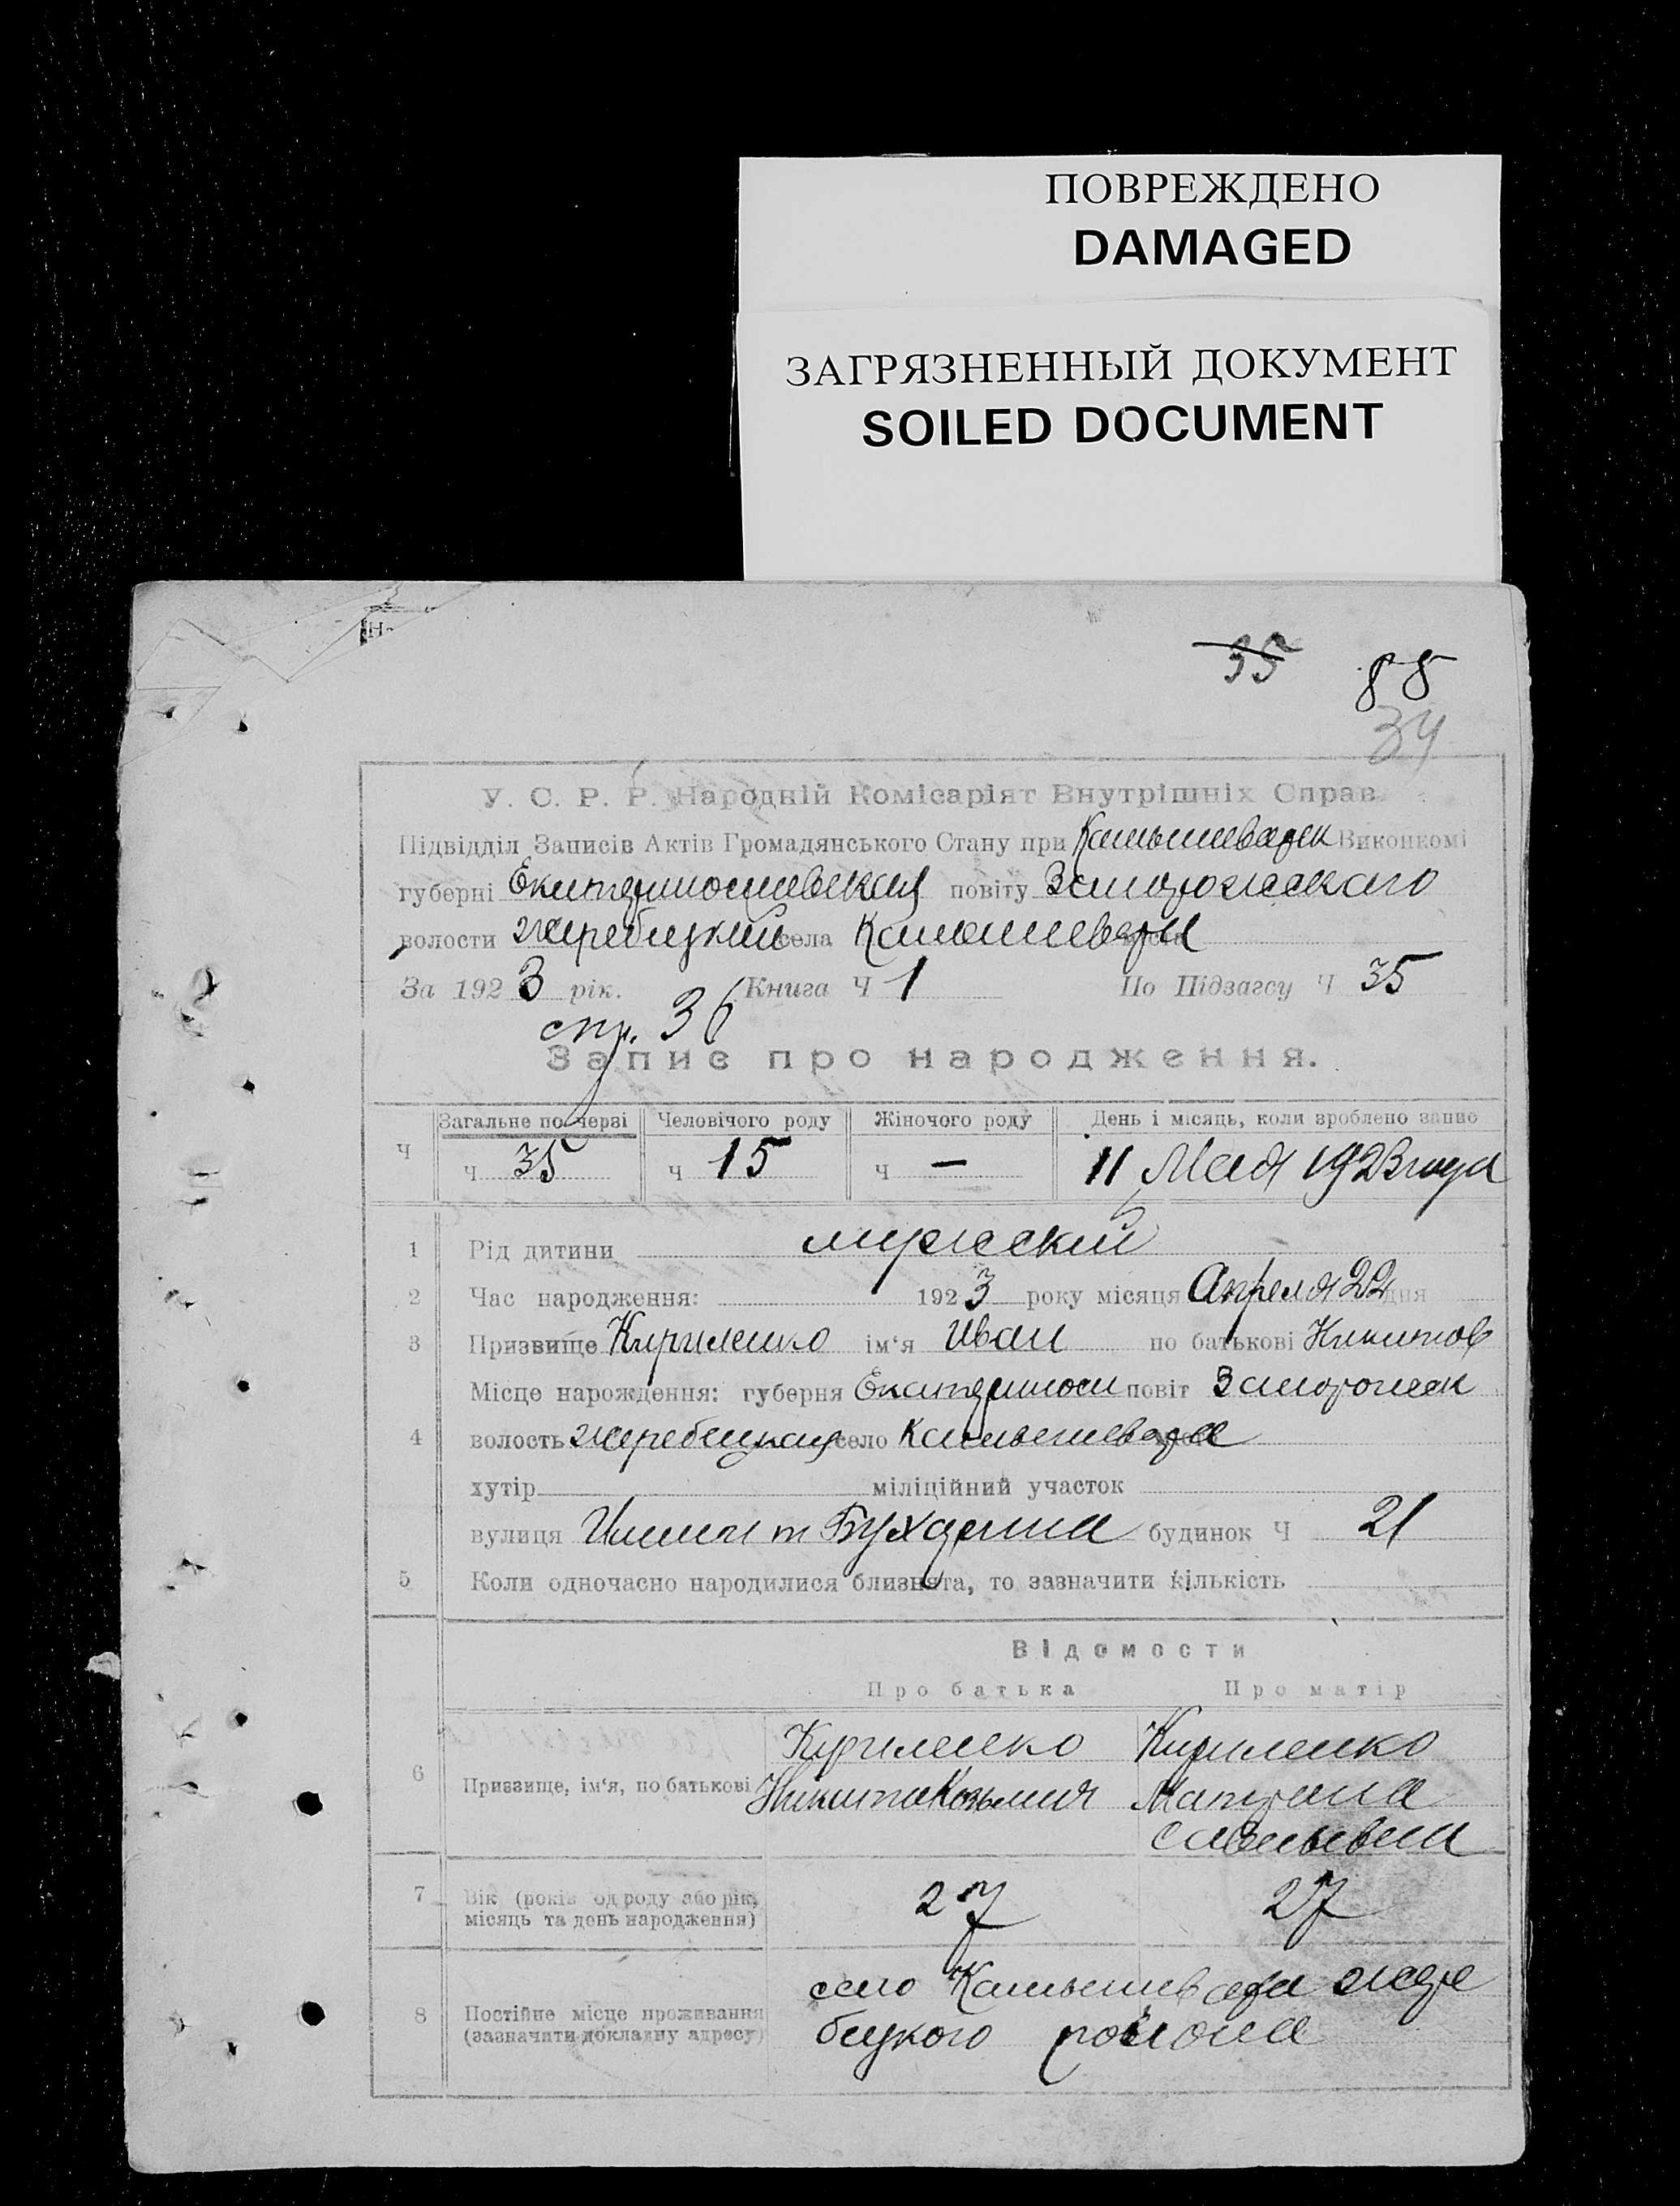 ПОВРЕЖДЕНО
DAMAGED
ЗАГРЯЗНЕННЫЙ ДОКУМЕНТ
SOILED DOCUMENT
35 88
34
У. С. Р. Р. Народній Комісаріят Внутрішніх Справ.
Підвідділ Записів Актів Громадянського Стану при Камышеваськ Виконкомі
губерні Екатеринославская повіту Запорожскаго
волости жеребецкий села Камышеваха
За 1923 рік. Книга Ч 1 По Підзагсу Ч 35
спр. 36
Запис про народження.
Загальне по черзі Человічого роду Жіночого роду День і місяць, коли зроблено запис
Ч ч 35 ч 15 ч — 11 Мая 1923 года
1 Рід дитини мужский
2 Час народження: 1923 року місяця Апреля 22 дня
3 Призвище Кириленко ім'я Иван по батькові Никитов
Місце нарождення: губерня Екатеринос повіт Запорожск
4 волость жеребецкая село Камышеваха
хутір міліційний участок
вулиця Имени т Бухарина будинок Ч 21
5 Коли одночасно народилися близнята, то зазначити кількість
Відомости
Про батька Про матір
Кириленко Кириленко
6 Призвище, ім'я, по батькові Никита Козьмич Матрена
Савельевна
7 Вік (років од роду або рік, 27 27
місяць та день народження)
село Камышеваха жере
8 Постійне місце проживання
(зазначити докладну адресу) бецкого района